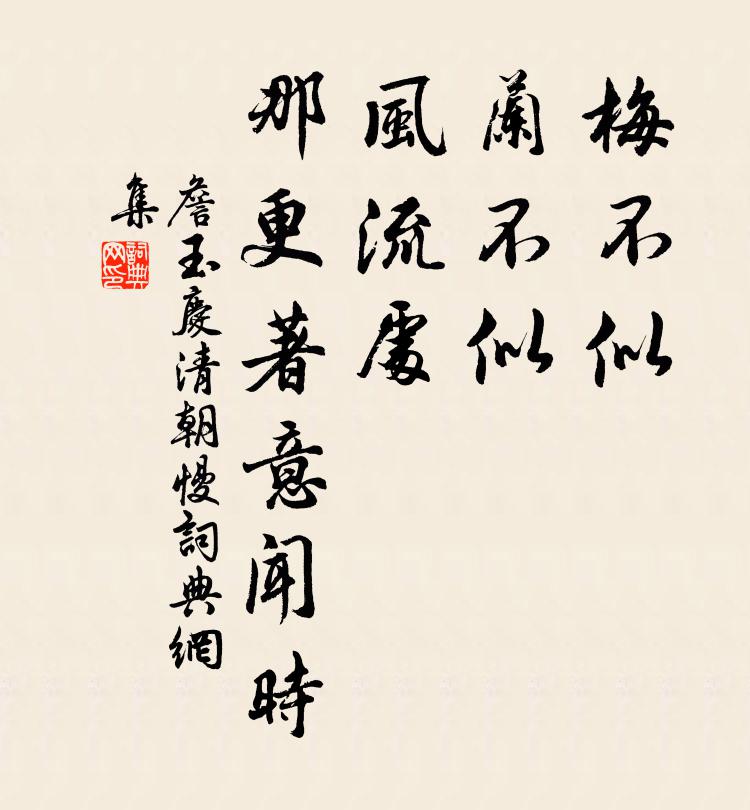 梅不似
蘭不似
風流處
那更著意聞時
詹玉慶清朝慢詞典網
集
詞典
網印